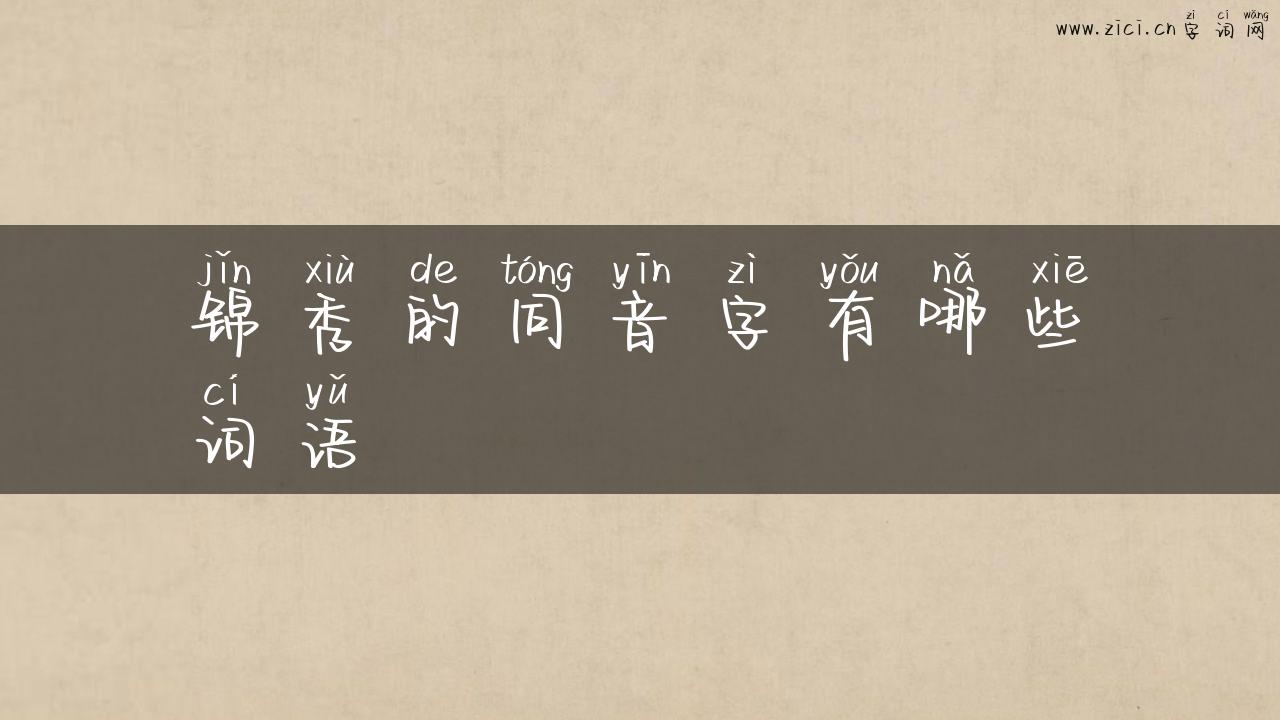 zì cí wǎng
www.zici.cn 字词网
jǐn xiù de tóng yīn zì yǒu nǎ xiē
锦秀的同音字有哪些
cí yǔ
词语